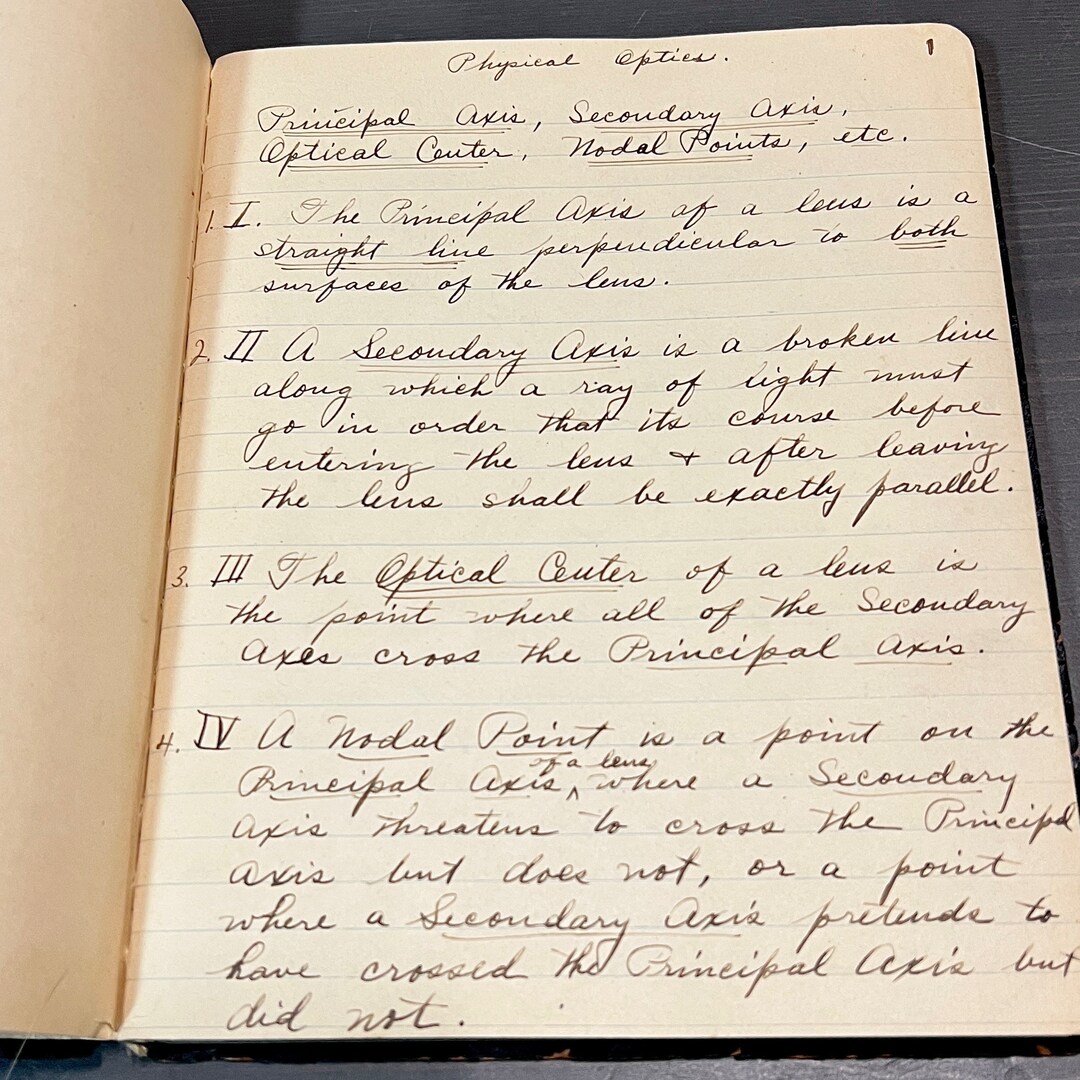 Physical Optics.
1
Principal Axis, Secondary Axis,
Optical Center, Nodal Points, etc.
1. I. The Principal Axis of a lens is a
straight line perpendicular to both
surfaces of the lens.
2. II A Secondary Axis is a broken line
along which a ray of light must
go in order that its course before
entering the lens & after leaving
the lens shall be exactly parallel.
3. III The Optical Center of a lens is
the point where all of the Secondary
Axes cross the Principal Axis.
4. IV A Nodal Point is a point on the
of a lens
Principal Axis, ^ where a Secondary
Axis threatens to cross the Principal
Axis but does not, or a point
where a Secondary Axis pretends to
have crossed the Principal Axis but
did not.